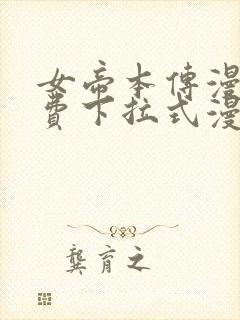 女帝本傳漫
費下拉式漫
龔育之